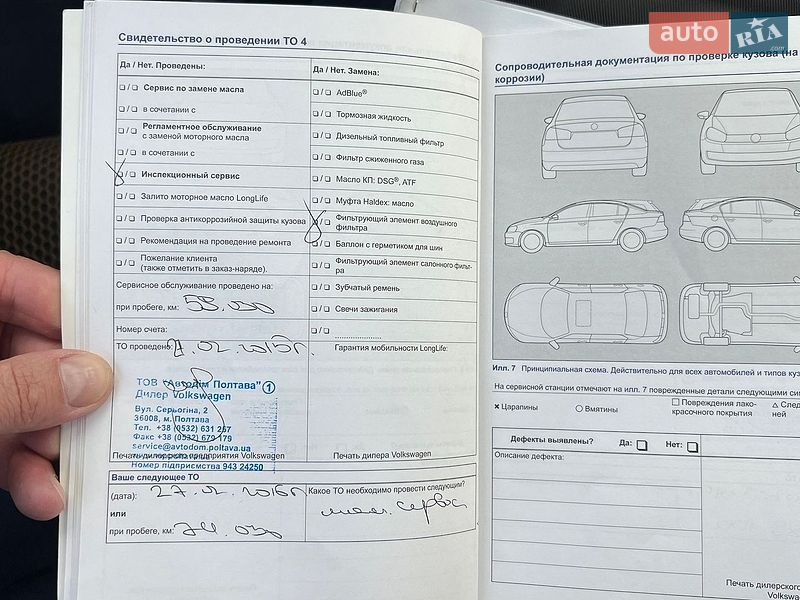 auto RIA .com
Свидетельство о проведении ТО 4
Да / Нет. Проведены:
☐/☐ Сервис по замене масла
☐/☐ в сочетании с
☐/☐ Регламентное обслуживание
с заменой моторного масла
☐/☐ в сочетании с
☐/☐ Инспекционный сервис
☐/☐ Залито моторное масло LongLife
☐/☐ Проверка антикоррозийной защиты кузова
☐/☐ Рекомендация на проведение ремонта
☐/☐ Пожелание клиента
(также отметить в заказ-наряде).
Сервисное обслуживание проведено на:
при пробеге, км:
Номер счета:
ТО проведено:
Да / Нет. Замена:
☐/☐ AdBlue®
☐/☐ Тормозная жидкость
☐/☐ Дизельный топливный фильтр
☐/☐ Фильтр сжиженного газа
☐/☐ Масло КП: DSG®, ATF
☐/☐ Муфта Haldex: масло
☐/☐ Фильтрующий элемент воздушного
фильтра
☐/☐ Баллон с герметиком для шин
☐/☐ Фильтрующий элемент салонного фильт-
ра
☐/☐ Зубчатый ремень
☐/☐ Свечи зажигания
☐/☐ ....................
Гарантия мобильности LongLife:
ТОВ "Автодім Полтава" 1
Дилер Volkswagen
Вул. Серьогіна, 2
36008, м. Полтава
Тел. +38 (0532) 631 267
Факс +38 (0532) 679 179
service@avtodom.poltava.ua
Печать дилерского предприятия Volkswagen
Номер підприємства 943 24250
Печать дилера Volkswagen
Ваше следующее ТО
(дата): 27.02.2016г
или
при пробеге, км: 74.030
Какое ТО необходимо провести следующим?
сервис
Сопроводительная документация по проверке кузова (на
коррозии)
Илл. 7 Принципиальная схема. Действительно для всех автомобилей и типов куз
На сервисной станции отмечают на илл. 7 поврежденные детали следующими си
× Царапины
○ Вмятины
☐ Повреждения лако-
красочного покрытия
△ След
ней
Дефекты выявлены? Да: ☐ Нет: ☐
Описание дефекта:
Печать дилерског
Volkswa